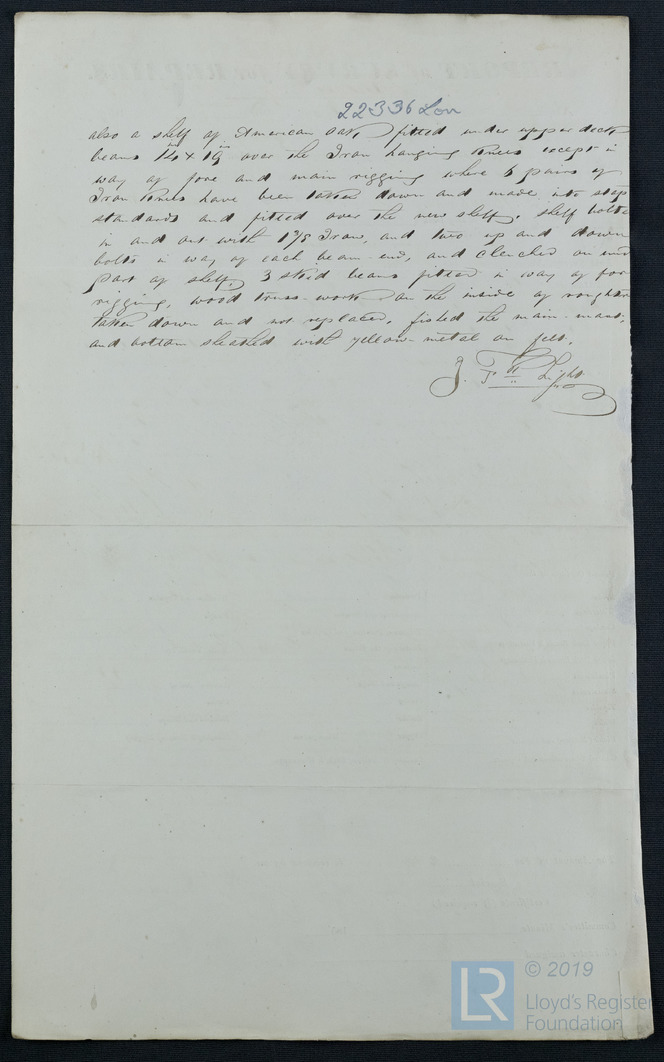 22336 Lon
also a shelf of American Oak, fitted under upper deck
beams 14 x over the Iron hanging knees except in
way of fore and main rigging where 6 pairs of
Iron knees have been taken down and made into stap
standards and fitted over the new shelf, shelf bolte
in and out with 1 3/8 Iron, and two up and down
bolts in way of each beam end, and clenched on und
part of shelf, 3 skid beams fitted in way of for
rigging, wood truss-work on the inside of
taken down and not replaced, fished the main-mast,
and bottom sheathed with yellow-metal on felt.
J. Light
© 2019
LR
Lloyd's Register
Foundation